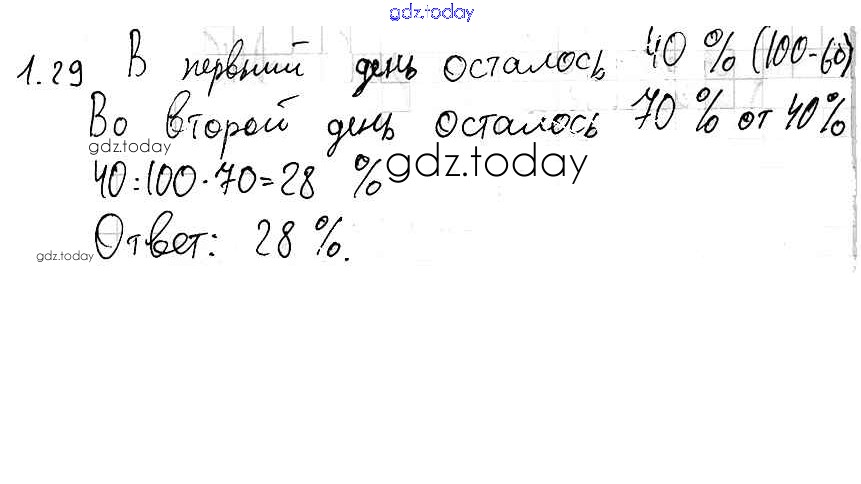 gdz.today
1.29 В первый день осталось 40 % (100-60)
Во второй день осталось 70 % от 40%
gdz.today
40:100·70=28 % gdz.today
Ответ: 28 %.
gdz.today